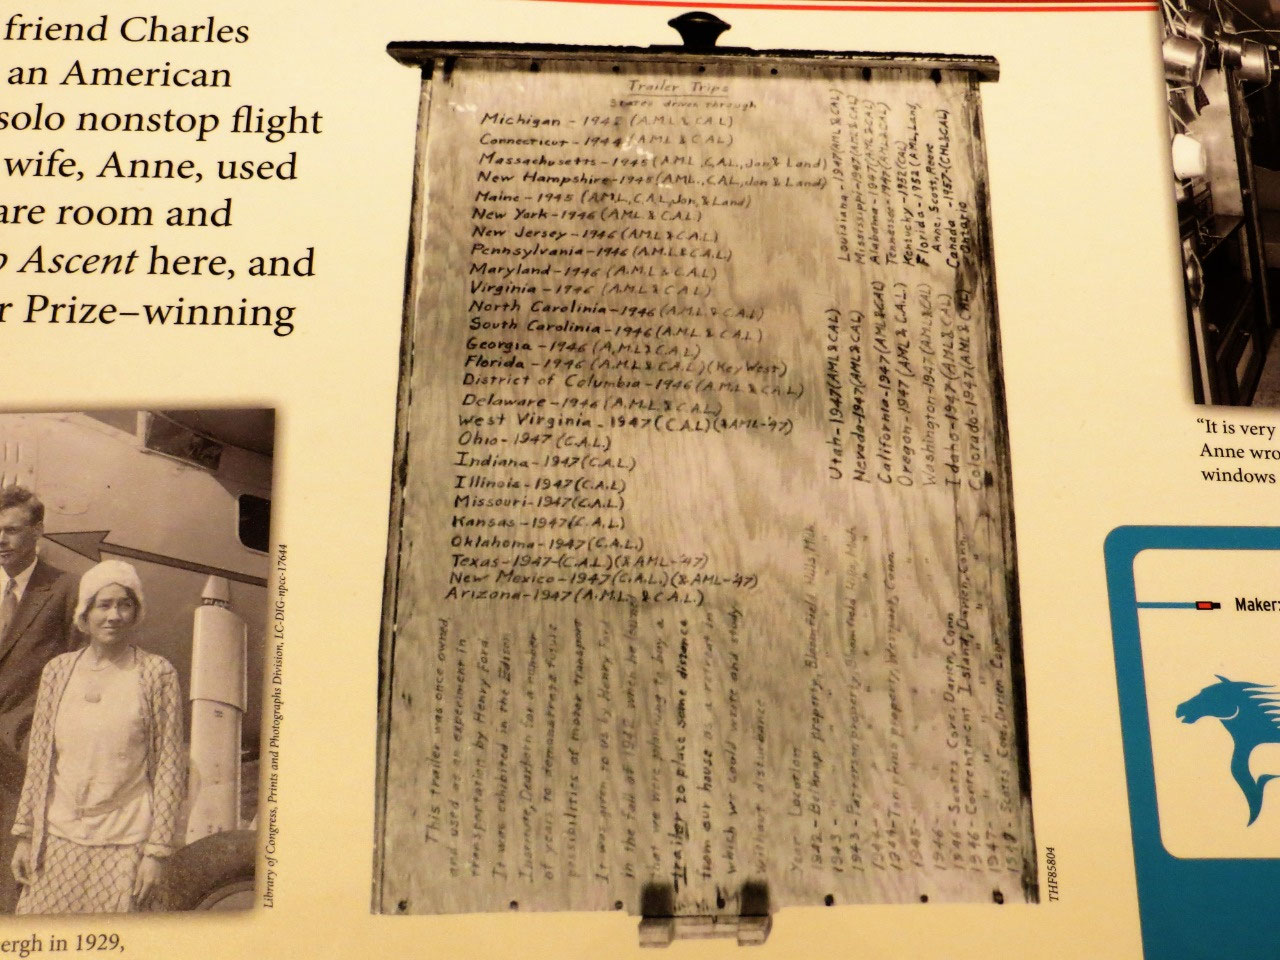 friend Charles
an American
solo nonstop flight
wife, Anne, used
are room and
Ascent here, and
r Prize–winning
Trailer Trips
States driven through
Michigan - 1942 (AML & CAL)
Connecticut - 1944 (AML & CAL)
Massachusetts - 1945 (AML, CAL, Jon & Land)
New Hampshire - 1945 (AML, CAL, Jon & Land)
Maine - 1945 (AML, CAL, Jon, & Land)
New York - 1946 (AML & CAL)
New Jersey - 1946 (AML & CAL)
Pennsylvania - 1946 (A.M.L & C.A.L)
Maryland - 1946 (A.M.L & CAL)
Virginia - 1946 (AML & CAL)
North Carolinia - 1946 (A.M.L & C.A.L)
South Carolinia - 1946 (A.M.L & C.A.L)
Georgia - 1946 (A.M.L & C.A.L)
Florida - 1946 (A.M.L & C.A.L) (Key West)
District of Columbia - 1946 (A.M.L & C.A.L)
Delaware - 1946 (A.M.L & C.A.L)
West Virginia - 1947 (C.A.L) (& AML - '47)
Ohio - 1947 (C.A.L.)
Indiana - 1947 (C.A.L)
Illinois - 1947 (C.A.L)
Missouri - 1947 (C.A.L)
Kansas - 1947 (C.A.L)
Oklahoma - 1947 (C.A.L.)
Texas - 1947 - (C.A.L) (& AML - '47)
New Mexico - 1947 (C.A.L.) (& AML - '47)
Arizona - 1947 (A.M.L. & C.A.L.)
Utah - 1947 (AML & CAL)
Nevada - 1947 (AML & CAL)
California - 1947 (AML & CAL)
Oregon - 1947 (AML & C.A.L)
Washington - 1947 (AML & CAL)
Idaho - 1947 (AML & CAL)
Colorado - 1947 (AML & CAL)
Louisiana - 1947 (AML & CAL)
Mississippi - 1947 (AML & CAL)
Alabama - 1947 (AML & CAL)
Tennessee - 1947 (AML & CAL)
Kentucky - 1952 (CAL)
Florida - 1952 (AML, Land,
Anne, Scott, Reeve
Canada - 1957 (CML & CAL)
Ontario
This trailer was once owned
and used as an experiment in
transportation by Henry Ford.
It was exhibited in the Edison
of years to demonstrate future
possibilities of motor transport
It was given to us by Henry Ford
in the fall of 1942 when he
that we were planning to buy a
Trailer to place some distance
from our house as a
which we could write and study
without disturbance
Year Location
1942 - Belknap property, Bloomfield Hills, Mich
1943 - " "
1943 -
1944 - " "
1945 - " "
1946 - " "
1946 - Scotts Cove, Darien, Conn
1946 - Contentment Island, Darien, Conn
1947 - " " "
Scotts Cove, Darien Conn
THF85804
Library of Congress, Prints and Photographs Division, LC-DIG-npcc-17644
ergh in 1929,
“It is very
Anne wro
windows
Maker: